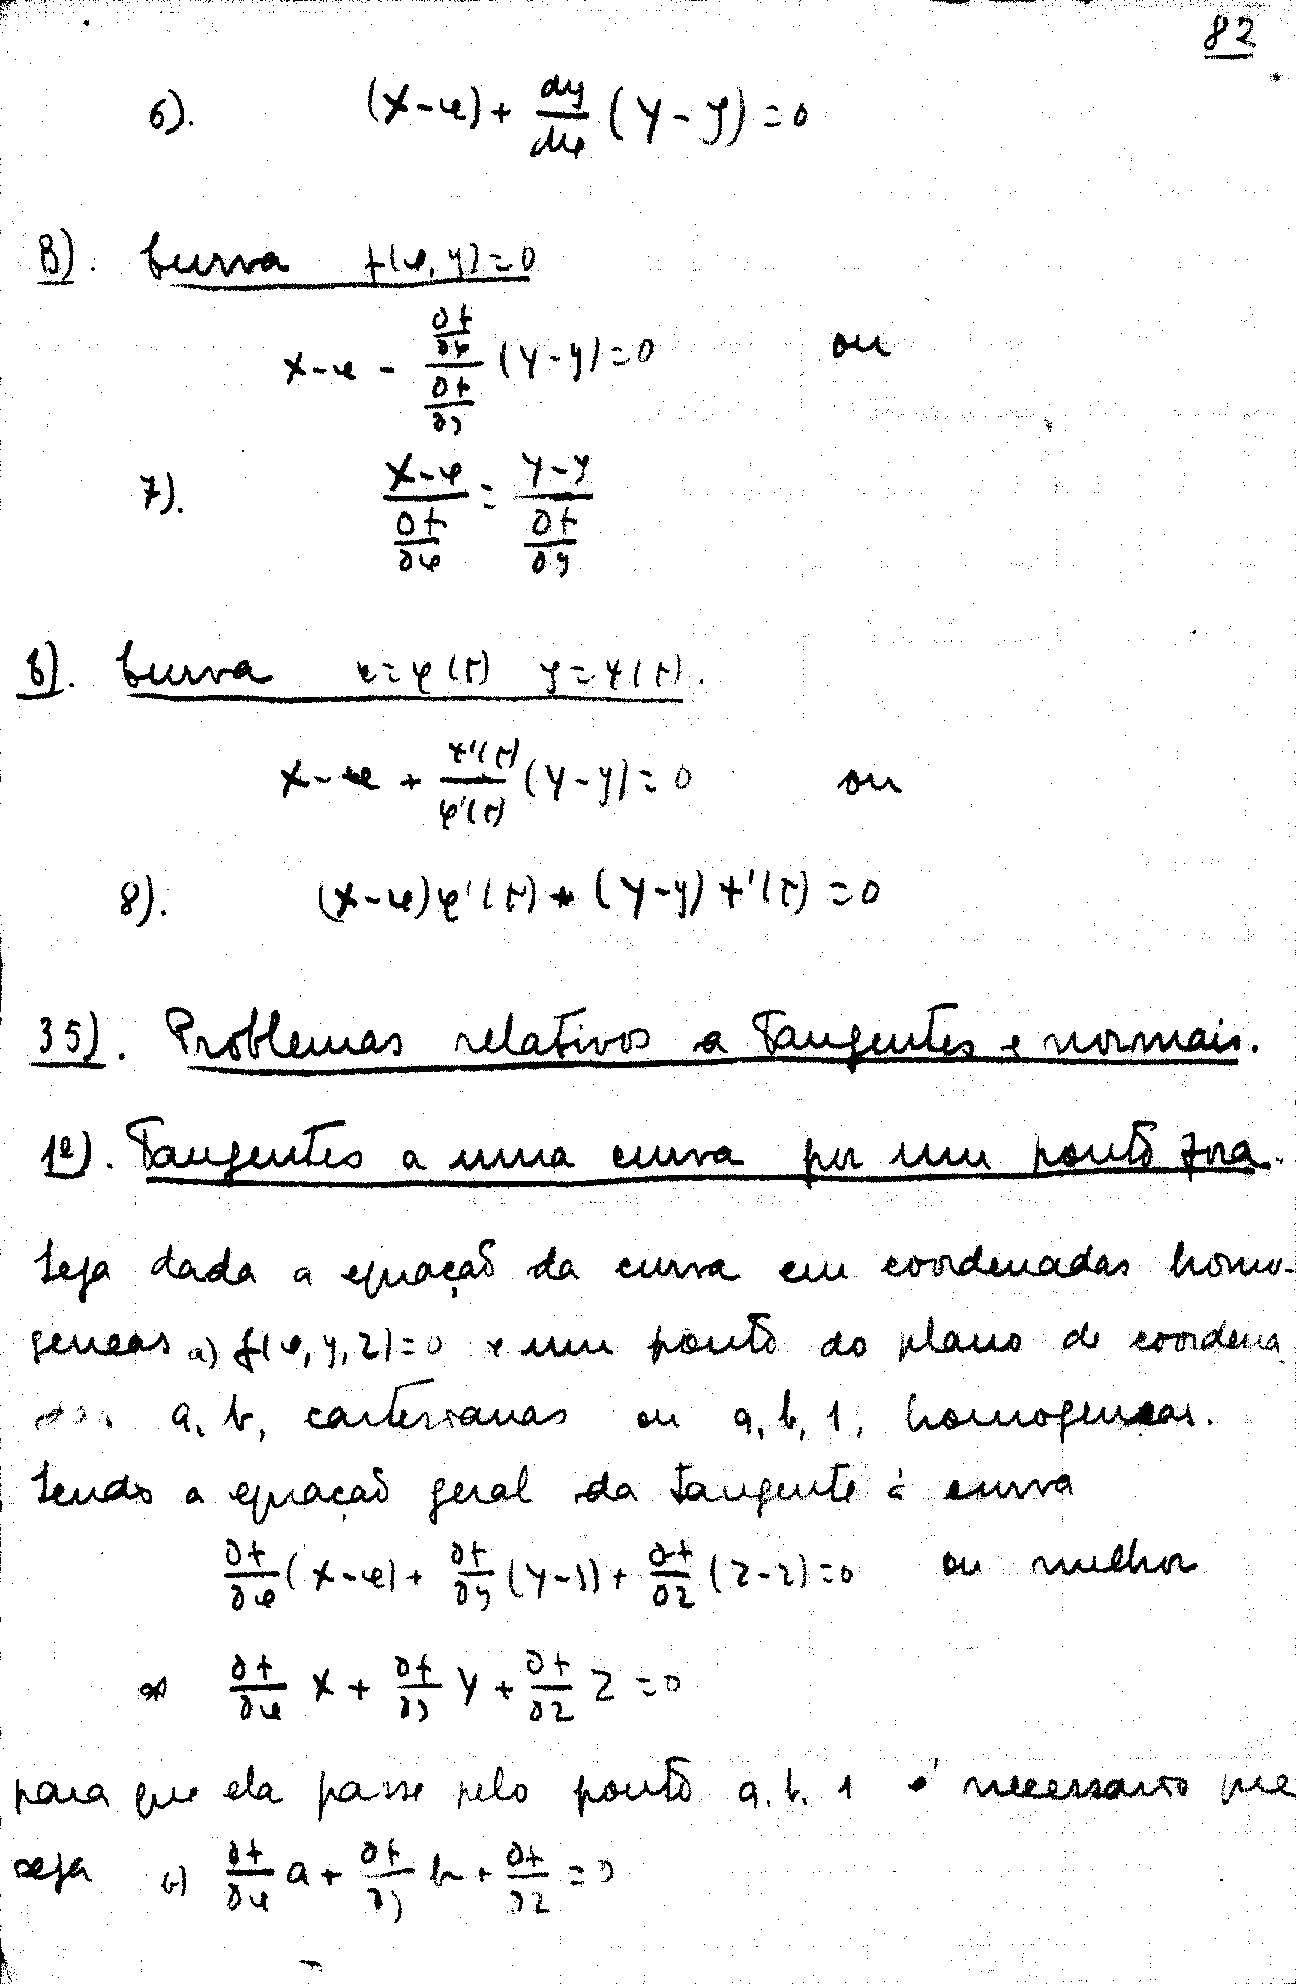 82
6). (X-x) + dy/dx (Y-y) = 0
B). Curva f(x,y)=0
X-x - (∂f/∂x)/(∂f/∂y) (Y-y) = 0 ou
7). (X-x)/(∂f/∂x) = (Y-y)/(∂f/∂y)
Curva x=φ(t) y=ψ(t).
X-x + ψ'(t)/φ'(t) (Y-y) = 0 ou
8). (X-x)φ'(t) + (Y-y)ψ'(t) = 0
35). Problemas relativos a Tangentes e normais.
1º). Tangentes a uma curva por um ponto fora.
Seja dada a equação da curva em coordenadas homo-
geneas a) f(x,y,z)=0 e um ponto do plano de coordena
a, b, cartesianas ou a, b, 1, homogeneas.
Sendo a equação geral da tangente á curva
∂f/∂x (X-x) + ∂f/∂y (Y-y) + ∂f/∂z (Z-z) = 0 ou melhor
∂f/∂x X + ∂f/∂y Y + ∂f/∂z Z = 0
para que ela passe pelo ponto a, b, 1 é necessario que
seja b) ∂f/∂x a + ∂f/∂y b + ∂f/∂z = 0